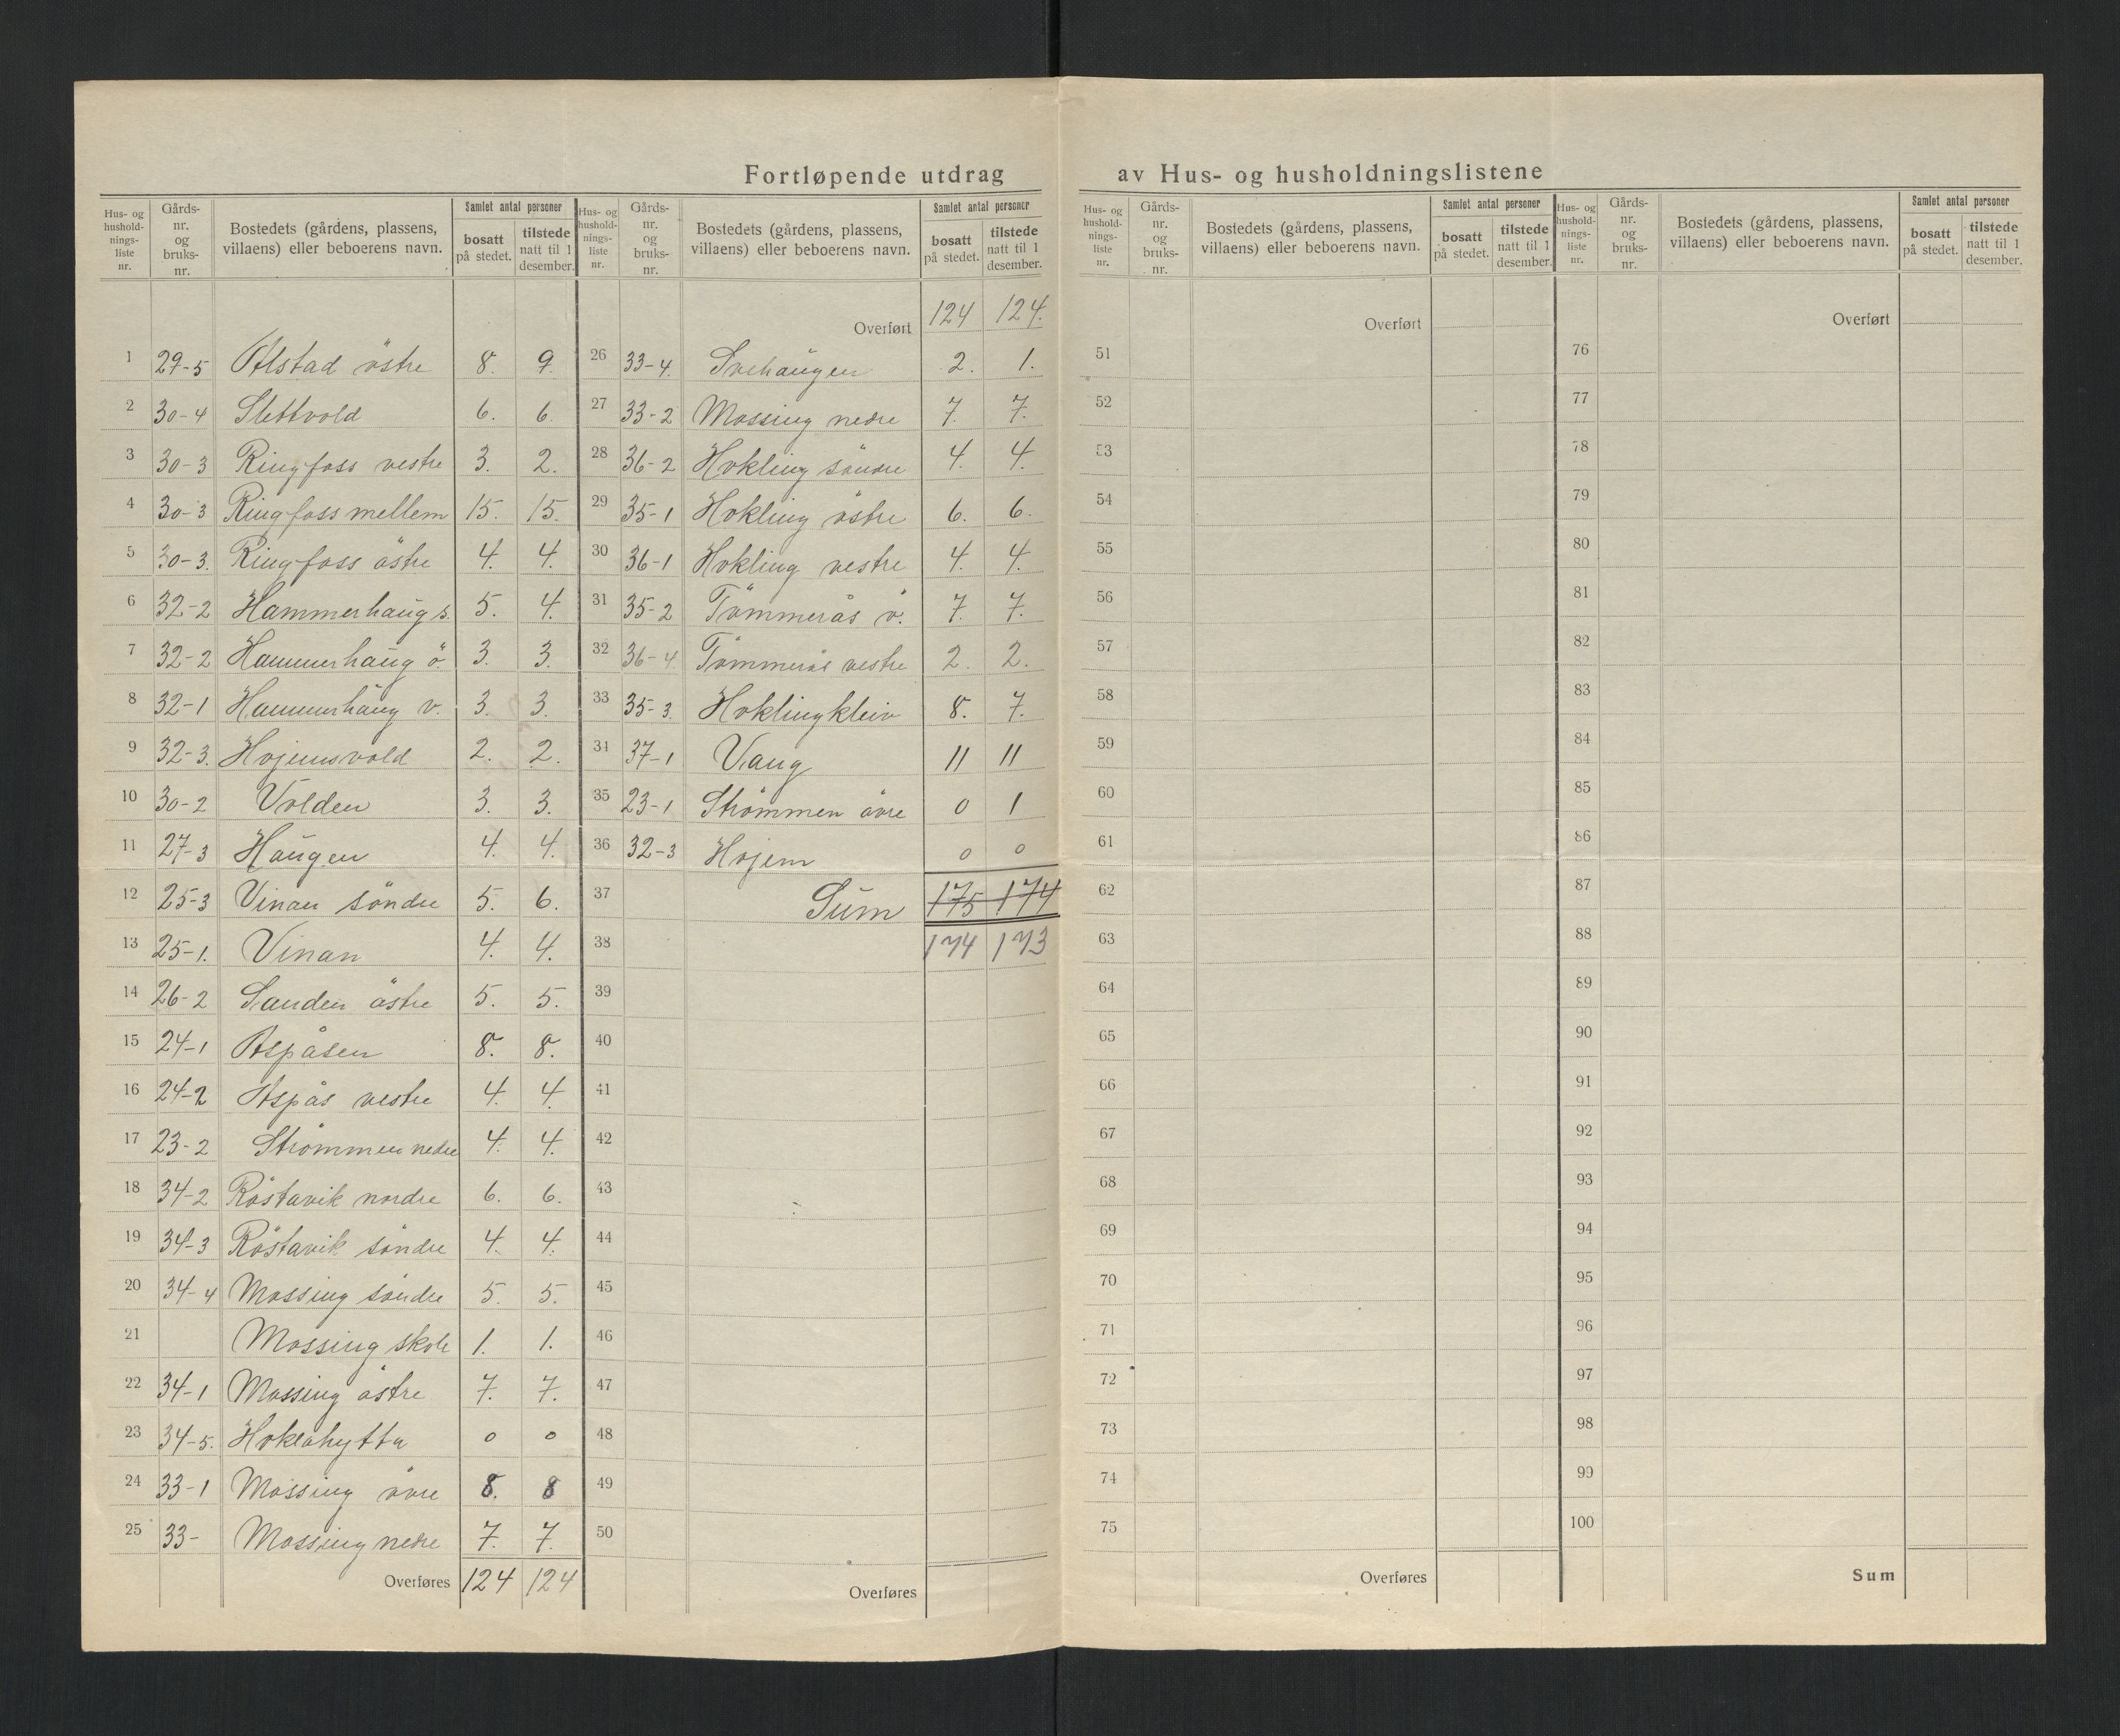 Fortløpende utdrag av Hus- og husholdningslistene
Hus- og hushold-nings-liste nr. Gårds-nr. og bruks-nr. Bostedets (gårdens, plassens, villaens) eller beboerens navn. Samlet antal personer bosatt på stedet. tilstede natt til 1 desember.
1 29-5 Alstad östre 8. 9.
2 30-4 Slettvold 6. 6.
3 30-3 Ringfoss vestre 3. 2.
4 30-3 Ringfoss mellem 15. 15.
5 30-3. Ringfoss östre 4. 4.
6 32-2 Hammerhaug s. 5. 4.
7 32-2 Hammerhaug ö. 3. 3.
8 32-1 Hammerhaug v. 3. 3.
9 32-3. Hojemsvold 2. 2.
10 30-2 Volden 3. 3.
11 27-3 Haugen 4. 4.
12 25-3 Vinan söndre 5. 6.
13 25-1. Vinan 4. 4.
14 26-2 Sanden östre 5. 5.
15 24-1 Aspåsen 8. 8.
16 24-2 Aspås vestre 4. 4.
17 23-2 Strömmen nedre 4. 4.
18 34-2 Röstavik nordre 6. 6.
19 34-3 Röstavik söndre 4. 4.
20 34-4 Mossing söndre 5. 5.
21 Mossing skole 1. 1.
22 34-1 Mossing östre 7. 7.
23 34-5. Hoklahytta 0 0
24 33-1 Mossing övre 8. 8
25 33- Mossing nedre 7. 7.
Overføres 124 124
Hus- og hushold-nings-liste nr. Gårds-nr. og bruks-nr. Bostedets (gårdens, plassens, villaens) eller beboerens navn. Samlet antal personer bosatt på stedet. tilstede natt til 1 desember.
Overført 124 124.
26 33-4. 2. 1.
27 33-2 Mossing nedre 7. 7.
28 36-2 Hokling söndre 4. 4.
29 35-1 Hokling östre 6. 6.
30 36-1 Hokling vestre 4. 4.
31 35-2 Tömmerås ö. 7. 7.
32 36-4. Tömmerås vestre 2. 2.
33 35-3. Hoklingkleiv 8. 7.
34 37-1 Vang 11 11
35 23-1 Strömmen övre 0 1
36 32-3 Hojem 0 0
37 Sum 175 174
38 174 173
39
40
41
42
43
44
45
46
47
48
49
50
Overføres
Hus- og hushold-nings-liste nr. Gårds-nr. og bruks-nr. Bostedets (gårdens, plassens, villaens) eller beboerens navn. Samlet antal personer bosatt på stedet. tilstede natt til 1 desember.
Overført
51
52
53
54
55
56
57
58
59
60
61
62
63
64
65
66
67
68
69
70
71
72
73
74
75
Overføres
Hus- og hushold-nings-liste nr. Gårds-nr. og bruks-nr. Bostedets (gårdens, plassens, villaens) eller beboerens navn. Samlet antal personer bosatt på stedet. tilstede natt til 1 desember.
Overført
76
77
78
79
80
81
82
83
84
85
86
87
88
89
90
91
92
93
94
95
96
97
98
99
100
Sum